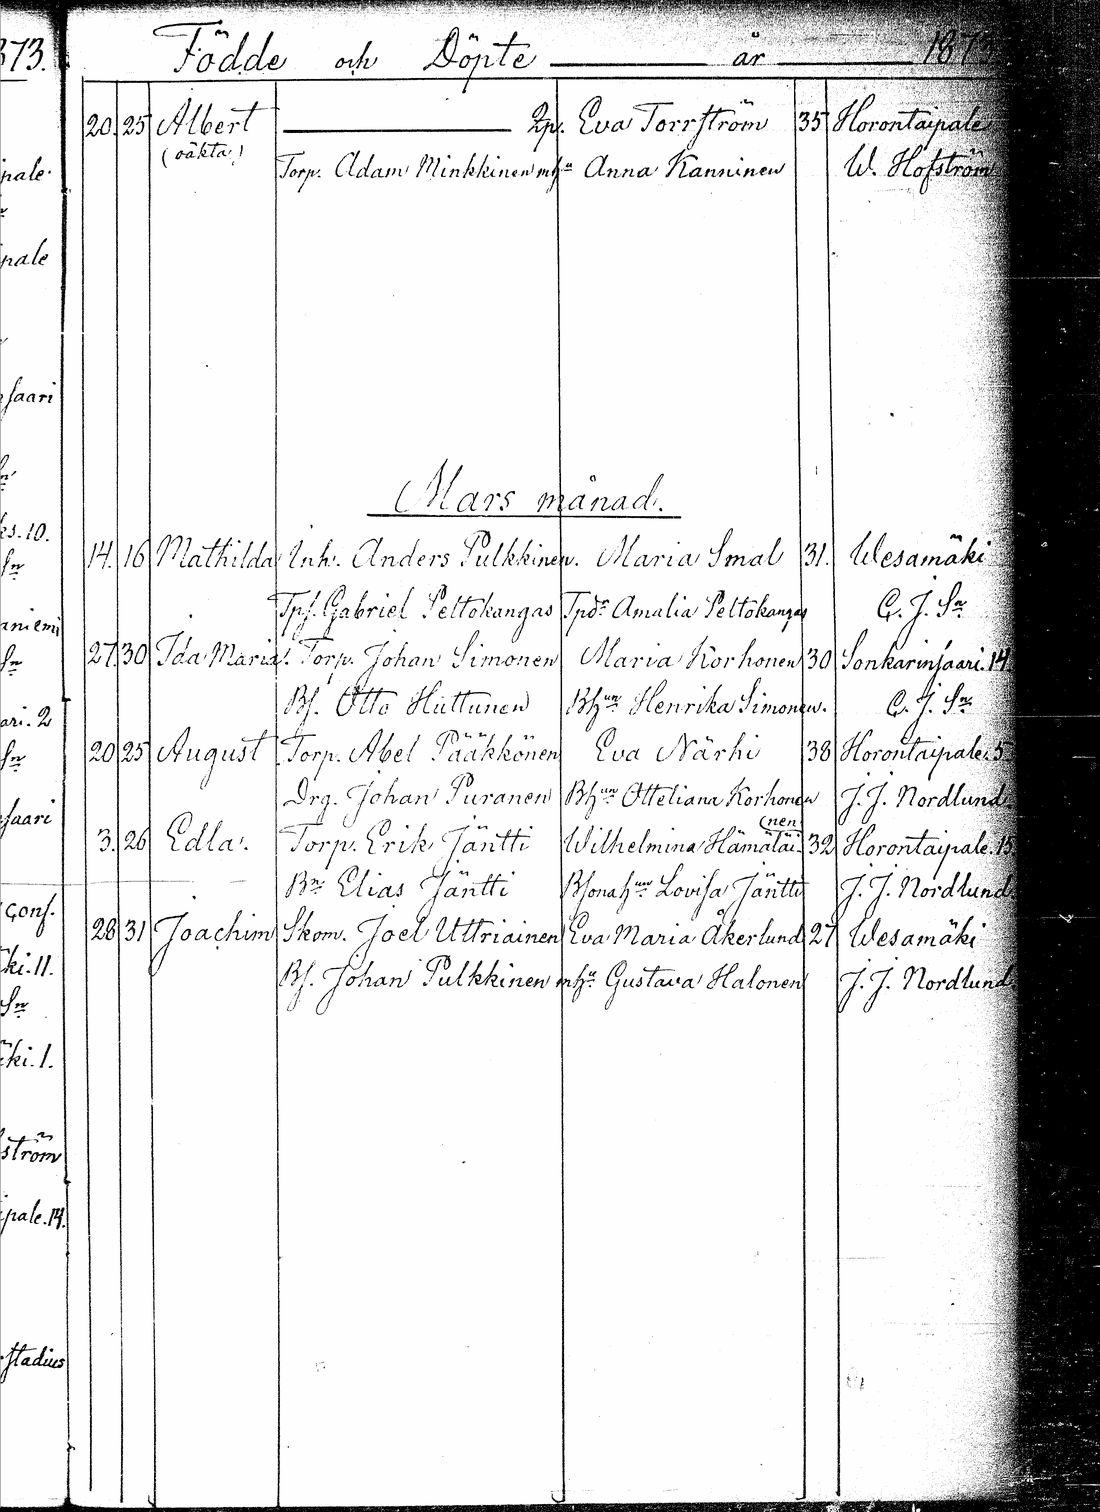 373.
Födde och Döpte år 1873
20. 25 Albert Zp. Eva Torrström 35 Horontaipale
(oäkta)
Torp. Adam Minkkinen mhu Anna Kanninen W. Hofström
pale.
pale
saari
Mars månad.
14. 16 Mathilda Inh. Anders Pulkkinen. Maria Smal 31. Wesamäki
Tps. Gabriel Peltokangas Tpdr Amalia Peltokangas C. J. Sn
27. 30 Ida Maria. Torp. Johan Simonen Maria Korhonen 30 Sonkarinsaari. 14
Bs. Otto Huttunen Bhun Henrika Simonen. C. J. Sn
20 25 August Torp. Abel Pääkkönen Eva Närhi 38 Horontaipale. 5
Drg. Johan Puranen Bhun Otteliana Korhonen J. J. Nordlund
3. 26 Edla. Torp. Erik Jäntti Wilhelmina Hämäläi (nen 32 Horontaipale. 15
Bn Elias Jäntti Bsonahun Lovisa Jäntti J. J. Nordlund
28 31 Joachim Skom. Joel Uttriainen Eva Maria Åkerlund 27 Wesamäki
Bs. Johan Pulkkinen mhu Gustava Halonen J. J. Nordlund
ks. 10.
Sn
aniemi
Sn
ari. 2
Sn
saari
Conf.
ki. 11.
Sn
ki. 1.
ström
pale. 14.
stadius